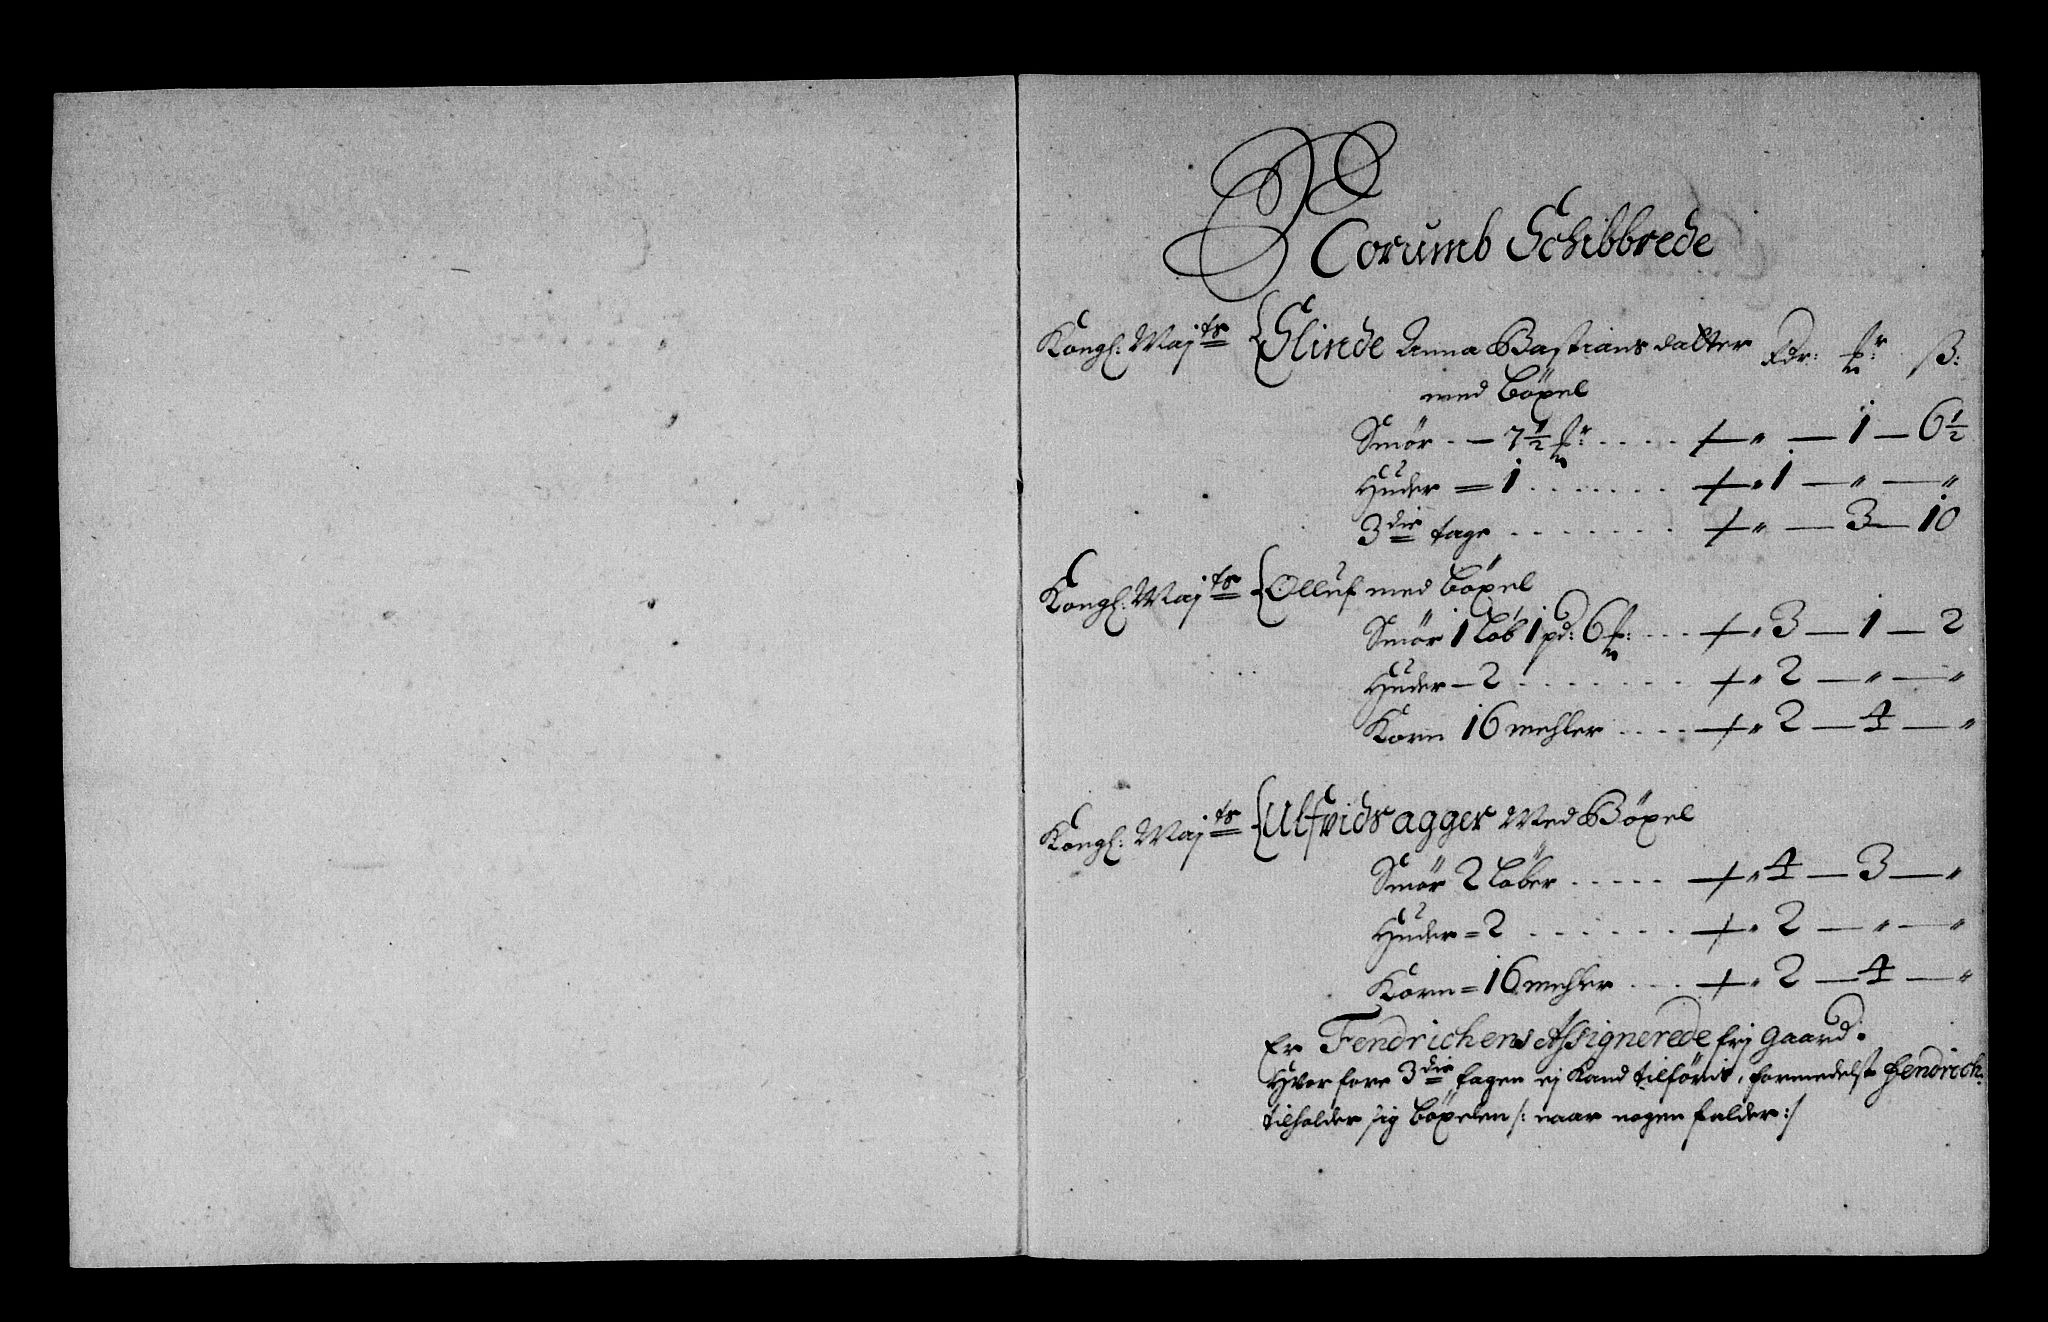 Corumb Schibbrede
Kongl: Majts {Slinde Anna Bastians datter Rdr: ß:
med böxel
Smör - - 7½ . . . . +" — 1 — 6½
Huder = 1 . . . . . . . +" 1 — " — "
3die tage . . . . . . . +" — 3 — 10
Kongl: Majts {Olluf med böxel
Smör 1 löb 1 pd: 6 . . . +" 3 — 1 — 2
Huder — 2 . . . . . . . +" 2 — " — "
Korn 16 mehler . . . . +" 2 — 4 — "
Kongl: Majts {Ulfvidsagger Med Böxel
Smör 2 löber . . . . . +" 4 — 3 — "
Huder = 2 . . . . . . +" 2 — " — "
Korn = 16 mehler . . . +" 2 — 4 — "
Er Fendrichens Assignerede frj gaard.
Hvorfore 3die tagen ej kand tilföris, formedelst Fendrich:
tilholder sig böxelen /: naar nogen falder :/